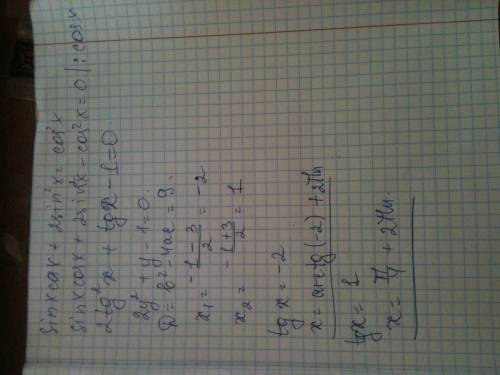 sin x cos x + 2 sin² x = cos² x
sin x cos x + 2 sin² x - cos² x = 0 | : cos x
2 tg² x + tg x - 1 = 0
2y² + y - 1 = 0
D = b² - 4ac = 9
x₁ = -1-3/2 = -2
x₂ = 1+3/2 = 1
tg x = -2
x = arctg (-2) + 2πn
tg x = 1
x = π/4 + 2πn